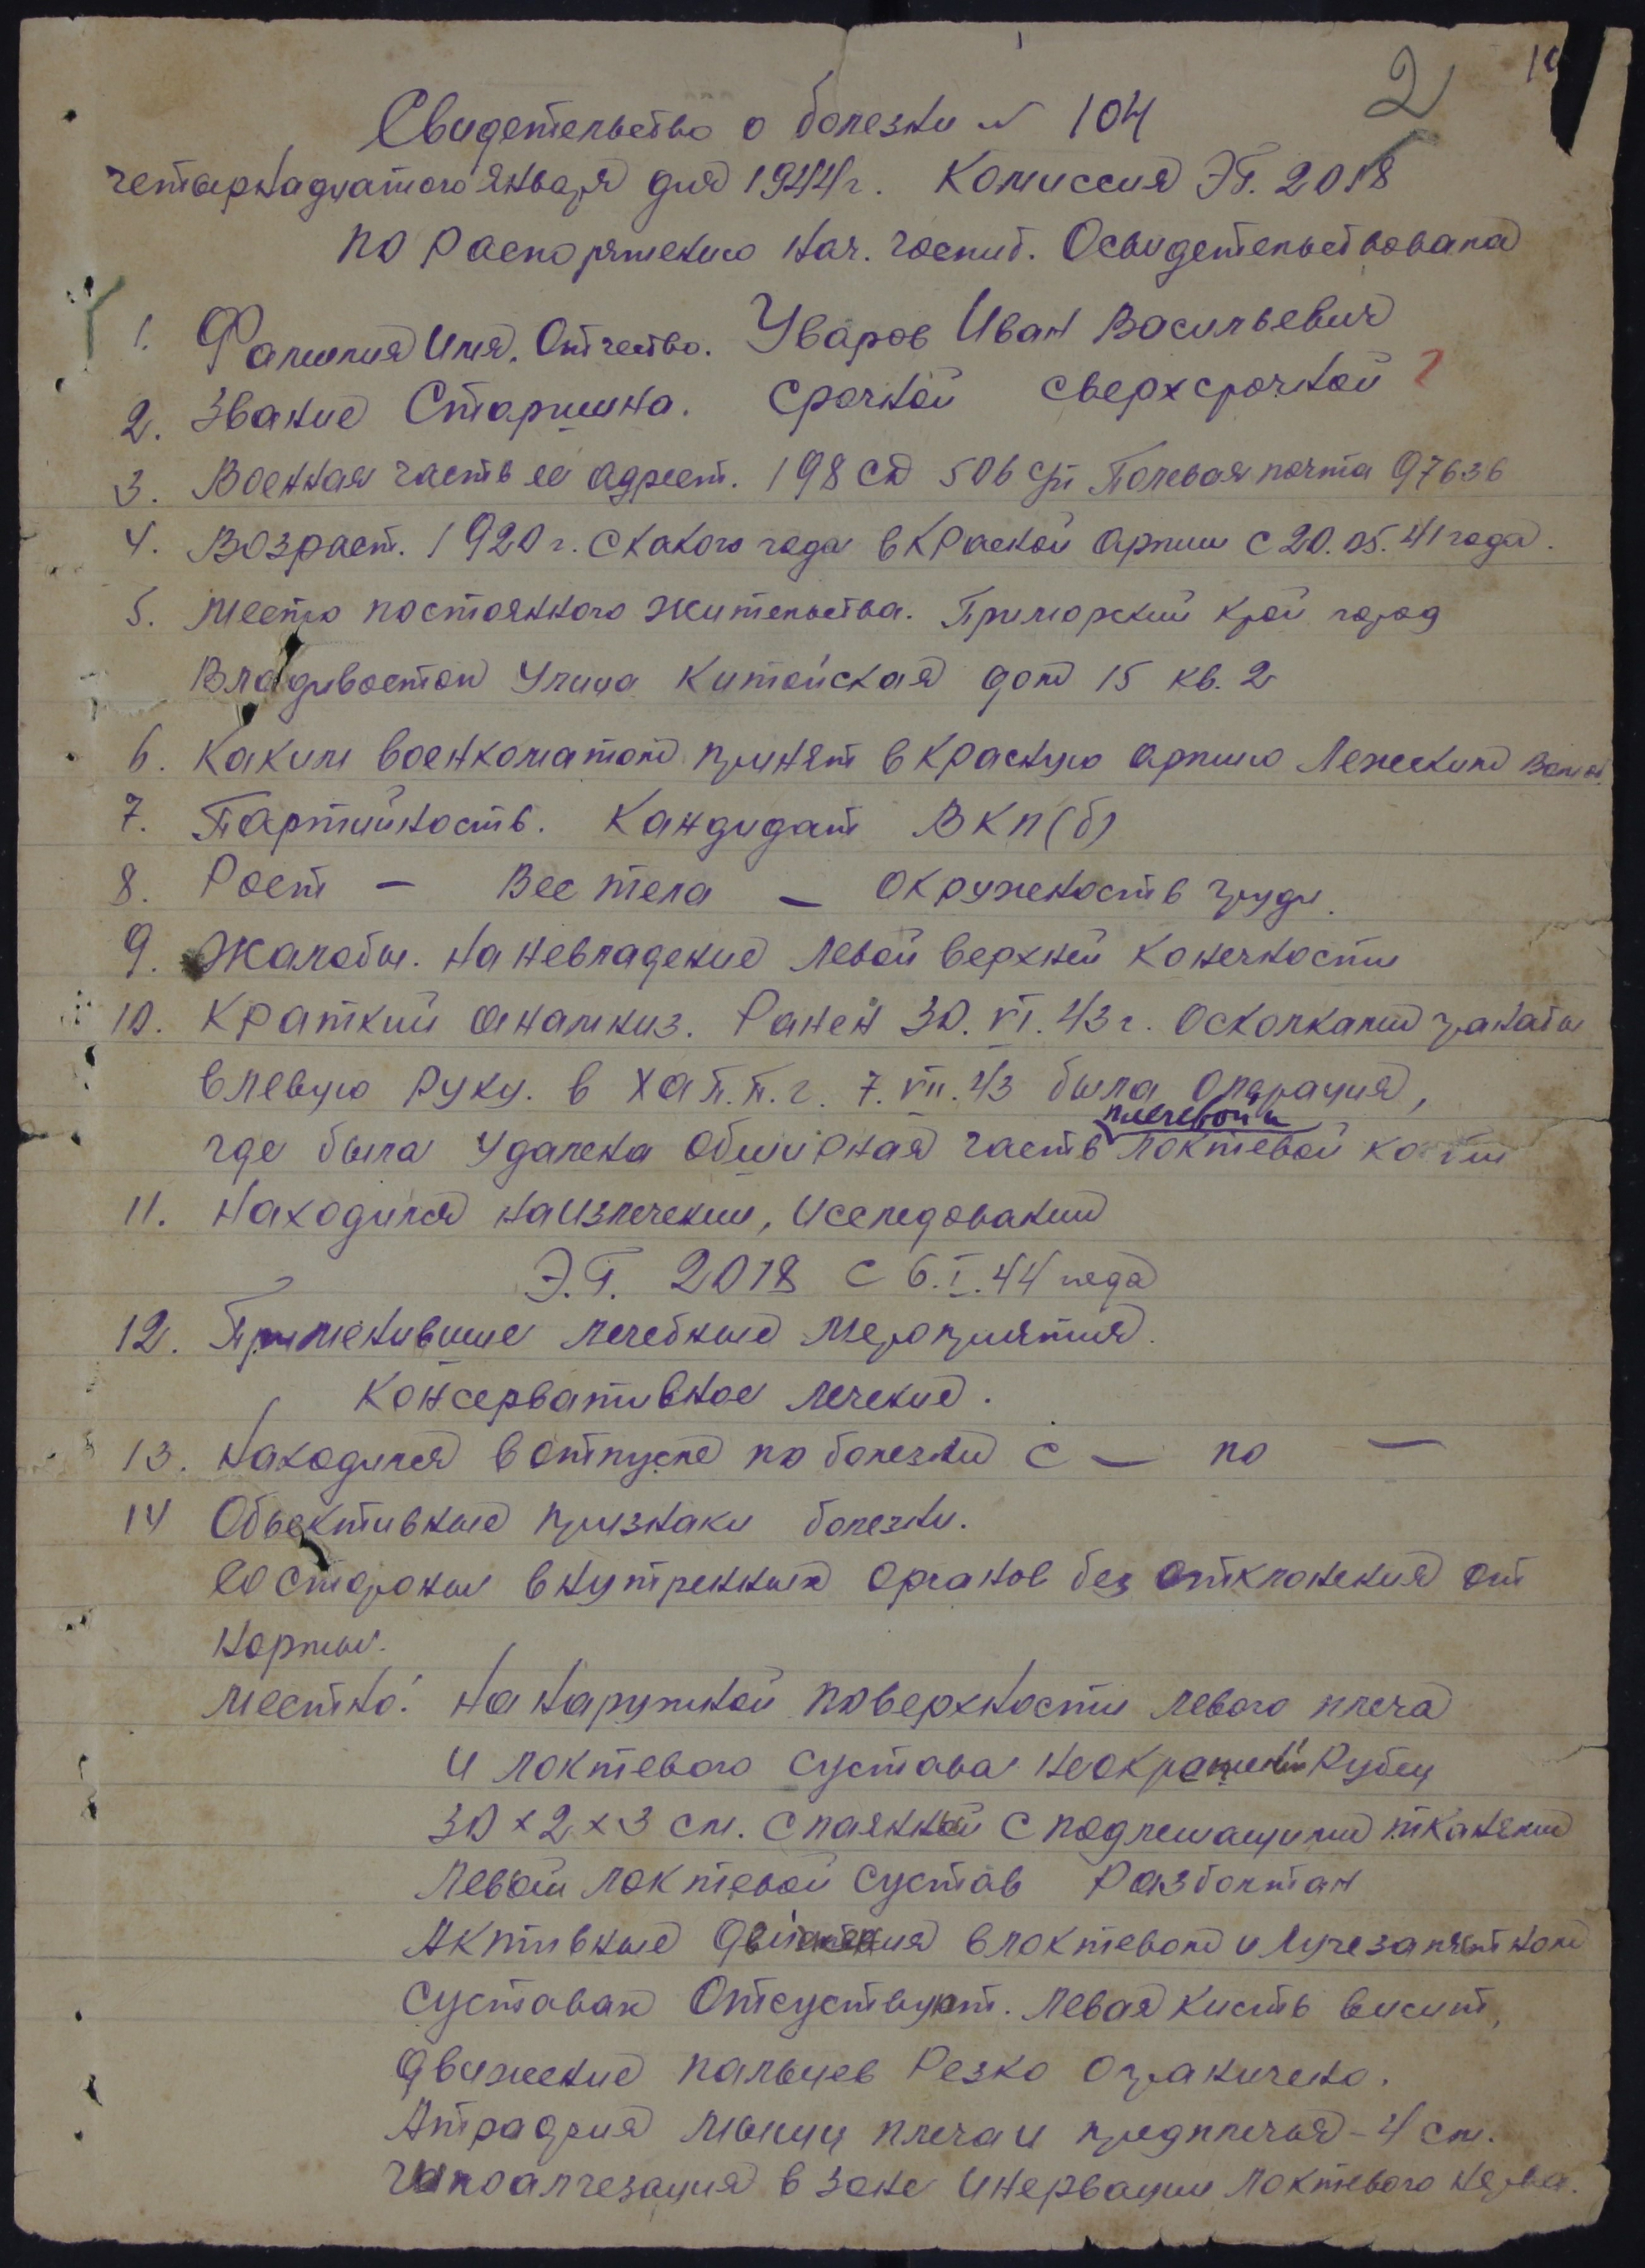 2
Свидетельство о болезни № 104
четырнадцатого января дня 1944 г. Комиссия ЭГ. 2018
по распоряжению нач. госпит. Освидетельствовала
1. Фамилия Имя. Отчество. Уваров Иван Васильевич
2. Звание Старшина. Срочной сверхсрочной ?
3. Военная часть ее адрест. 198 сд 506 сп Полевая почта 97636
4. Возраст. 1920 г. С какого года в Краской армии с 20.05.41 года.
5. Место постоянного жительства. Приморский край город
Владивосток Улица Китайская дом 15 кв. 2
6. Каким военкоматом принят в Красную армию
7. Партийность. Кандидат ВКП(б)
8. Рост — Вес тела — Окружность груди.
9. Жалобы. На невладение левой верхней конечности
10. Краткий анамниз. Ранен 30. VI. 43 г. Осколками гранаты
в левую руку. в ХАП.П.Г. 7. VII. 43 была операция,
плечевой и
где была удалена обширная часть локтевой кости
11. Находился на излечении, Иследовании
Э.Г. 2018 с 6.I.44 года
12. Применившие лечебные мероприятия.
Консервативное лечение.
13. Находился в отпуске по болезни с — по —
14 Объективные признаки болезни.
Со стороны внутренных органов без отклонения от
нормы.
Местно: На наружной поверхности левого плеча
и локтевого сустава неокрепший Рубец
30 × 2 × 3 см. спаянный с подлежащими тканями
Левый локтевой сустав Разболтан
Активные движения в локтевом и Лучезапястном
суставах Отсуствуют. Левая кисть висит,
движение пальцев Резко ограничено.
Атрофия мышц плеча и предплечья - 4 см.
Гипоалгезация в зоне Инервации Локтевого нерва.